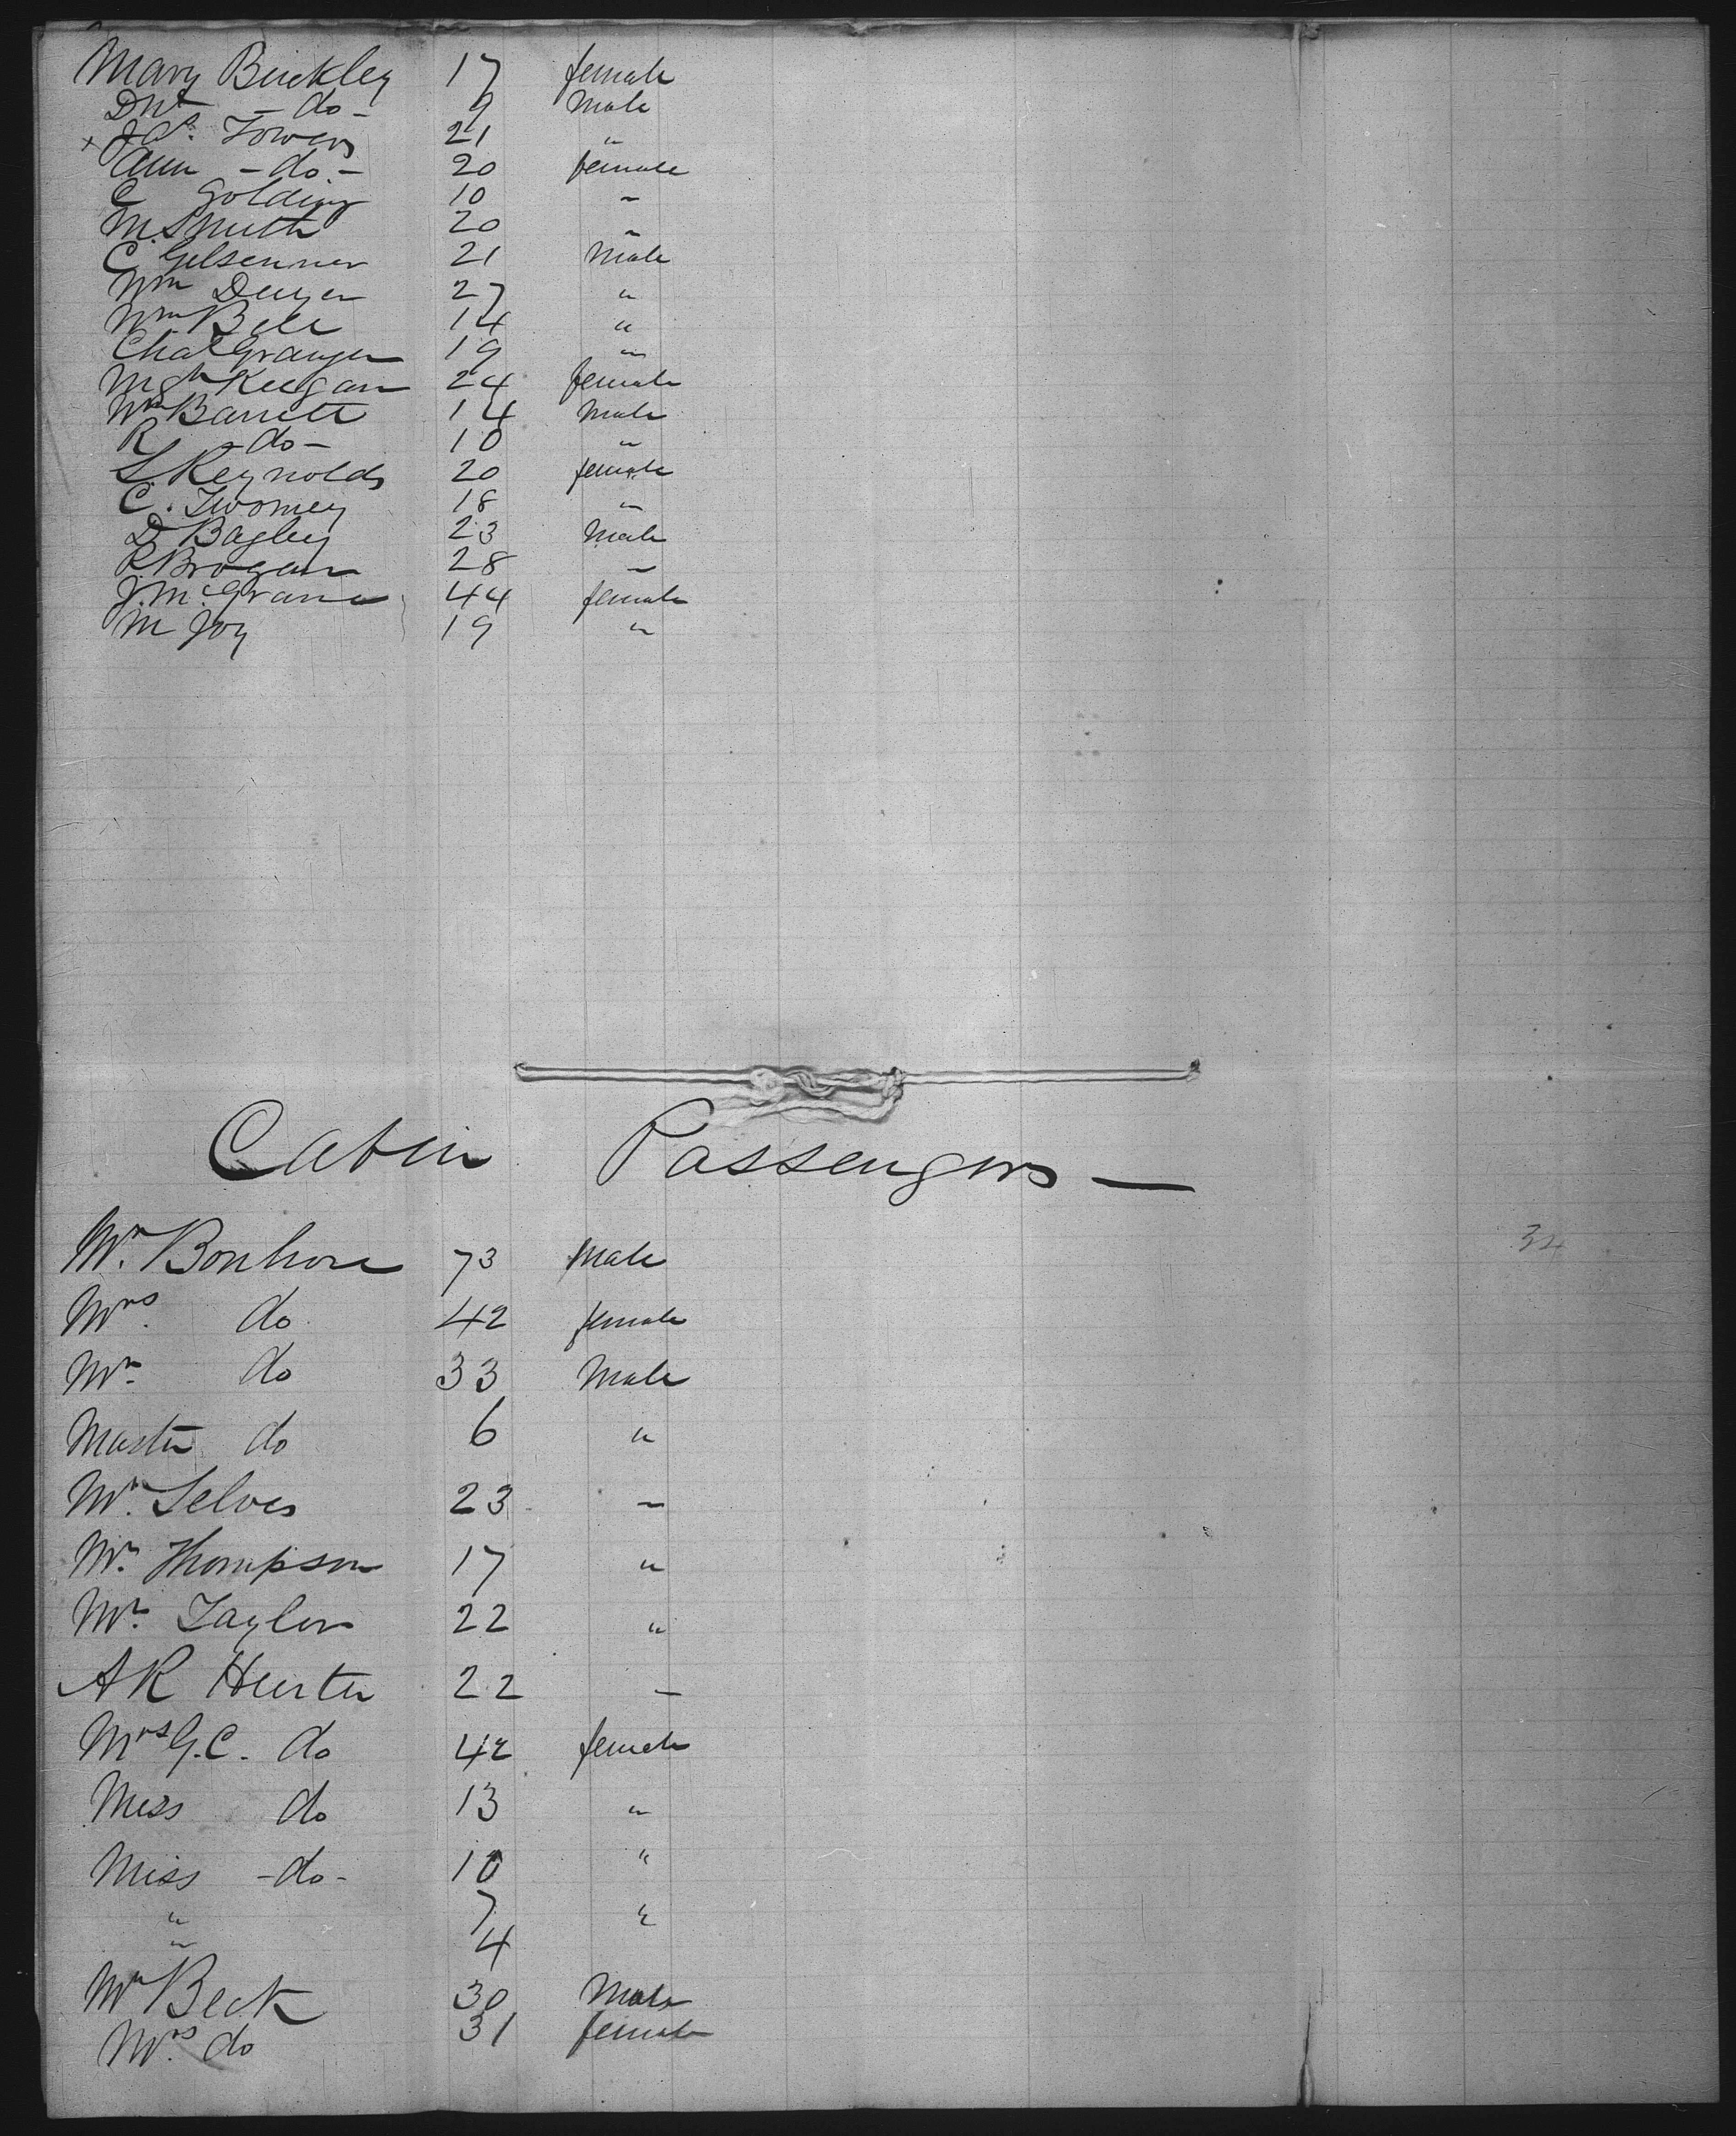 Mary Buckley 17 female
Dnl - do - 9 Male
x Jas. Towers 21 "
Ann - do - 20 female
C Golding 10 "
M. Smith 20 "
C 21 Male
Wm Dwyer 27 "
Wm Bell 14 "
Chas Granger 19 "
Mgt Keegan 24 female
Wm Barrett 14 Male
R - do - 10 "
S. Reynolds 20 female
C. Twomey 18 "
D Bagley 23 Male
P. Brogan 28 "
J. McGrane 44 female
M Joy 19 "
Cabin Passengers —
Mr. Bonhore 73 Male
34
Mrs. do 42 female
Mr. do 33 Male
Master do 6 "
Mr. Selves 23 "
Mr. Thompson 17 "
Mr. Taylor 22 "
A R Hurter 22 "
Mrs G. C. do 42 female
Miss do 13 "
Miss - do - 10 "
" 7 "
" 4
Mr Beck 30 Male
Mrs. do 31 female